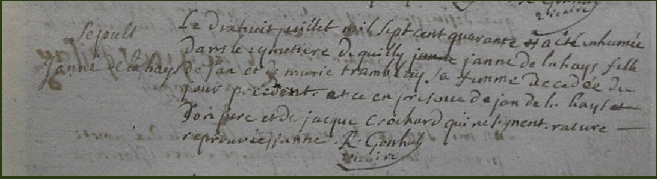 vicaire
Sepult
janne delahays
Le dixhuit juillet mil sept cent quarante a été inhumée
dans le cymetiere de quilly janne delahays fille
de jan et de marie sa femme decedée du
jour precedent et ce en presence de jan de la hays et
de jacque crochard qui ne signent rature
reprouvée janne R Gouhal
vicaire